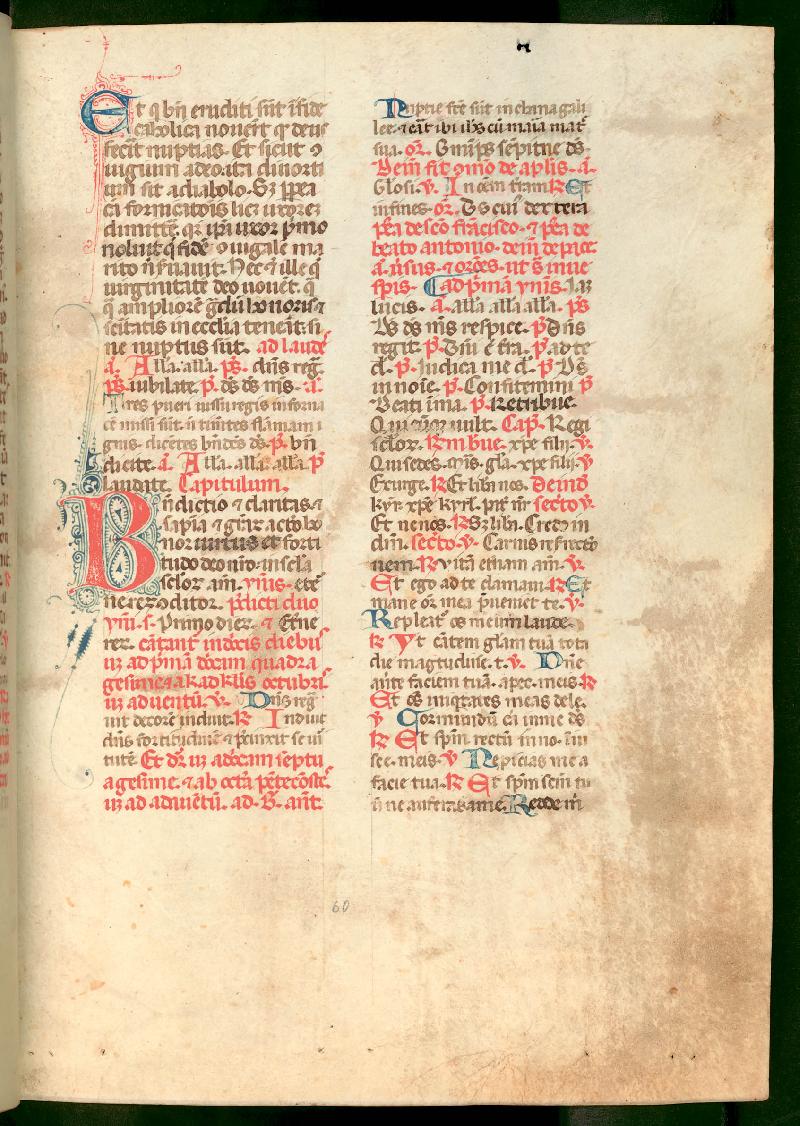 Et q bn̄ eruditi sūt ī fide
catholica noueīt qr deus
fecit nuptias. Et sicut ↄ
iugium a deo. ita diuorti
um sit a diabolo. Sz ppea
ca fornicatōis licz uxorez
dimitte. qr ip̄a uxor prmo
noluit q fidē ↄiugale ma
rito n̄ s̄uauit. Nec ⁊ ille q
uirginitatē deo nouēt. q̄
q̄ ampliorē gdū honoris ⁊
scītatis in ecclīa tenent. si
ne nuptiis sūt. ad laude
a. Alla. alla. ps. dn̄s reḡ.
ps. iubilate. p. ds ds ms. a.
Tres pueri iussu regis in forna
cē missi sūt. n̄ timētes flāmam i
gnis. dicētes bn̄dcs ds. p. bn̄
dicite. a. Alla. alla. alla. p
laudate. Capitulum.
Bn̄dictio ⁊ claritas ⁊
sapīa ⁊ gr̄ar actō ho
nor uirtus et forti
tudo deo nr̄o. in sc̄la
sc̄lor. am̄. ymis. ete
ne rerz ↄditor. p̄dicti duo
ym̄.s. Primo dierz. ⁊ Et̄ne
rez. cātant in docis diebus
uz ad p̄mā dōcam quadra
gesime ⁊ a kadklis octubris
uz ad aduentū. v. Dn̄s reḡ
uit decorē induit. R Induit
dn̄s fortitudinē ⁊ p̄cinxit se ui
tutē. Et dr uz a docam septu
agesime. ⁊ ab octa pētecoste
uz ad aduētū. ad. B. ant.
Nuptie fc̄te sūt in chana gali
lee. ⁊ cāt ibi ihs cū maīa mat
sua. or. Om̄ips sepitne ds.
Dem fit omō de aplis. a.
Glosi. v. In oēm tram R Et
in fines. or. Ds cui dextera
p̄ea de scō frācisco. ⁊ p̄ea de
beato antonio. dein̄ de pace
a. usus. ⁊ orōes. ut s̄ inue
spis. Cad p̄mā ymis. Iaz
lucis. a. alla alla alla. ps
Ds ds ms respice. p. Dn̄s
regit. p. Dn̄i ē tra. p. ad te
d. p. Iudica me d. p. Ds
in noīe. p. Confitemini p
Beati ima. p. Retribue.
Quicūqz uult. Cap. Regi
sclor. R m̄ bue. xp̄e filij. v.
Qui sedes. ym̄s. gla. xp̄e filij. v
Exurge. R Et libn nos. Deind
kyr. xp̄e kyrl. p̄r nr̄ secto v.
Et ne nos. R Sz libn. Credo in
dm̄. secto. v. Carnis resrectō
nem. R vitā etnam am̄. v.
Et ego ad te clamaui. R Et
mane or mea p̄ueniet te. v.
Repleat os meum laude.
R Vt cātem glam tuā tota
die magtudinē. t. v. Dn̄e
aute faciem tuā. a pec. meis. R
Et oēs iniqtates meas dele.
v Cor mundū cā in me ds
R Et spm̄ rectū inno. in ui
sce. meis. v Ne picias me a
facie tua. R Et spm̄ scm̄ tu
ū ne auferas a me. Redde m̄
60